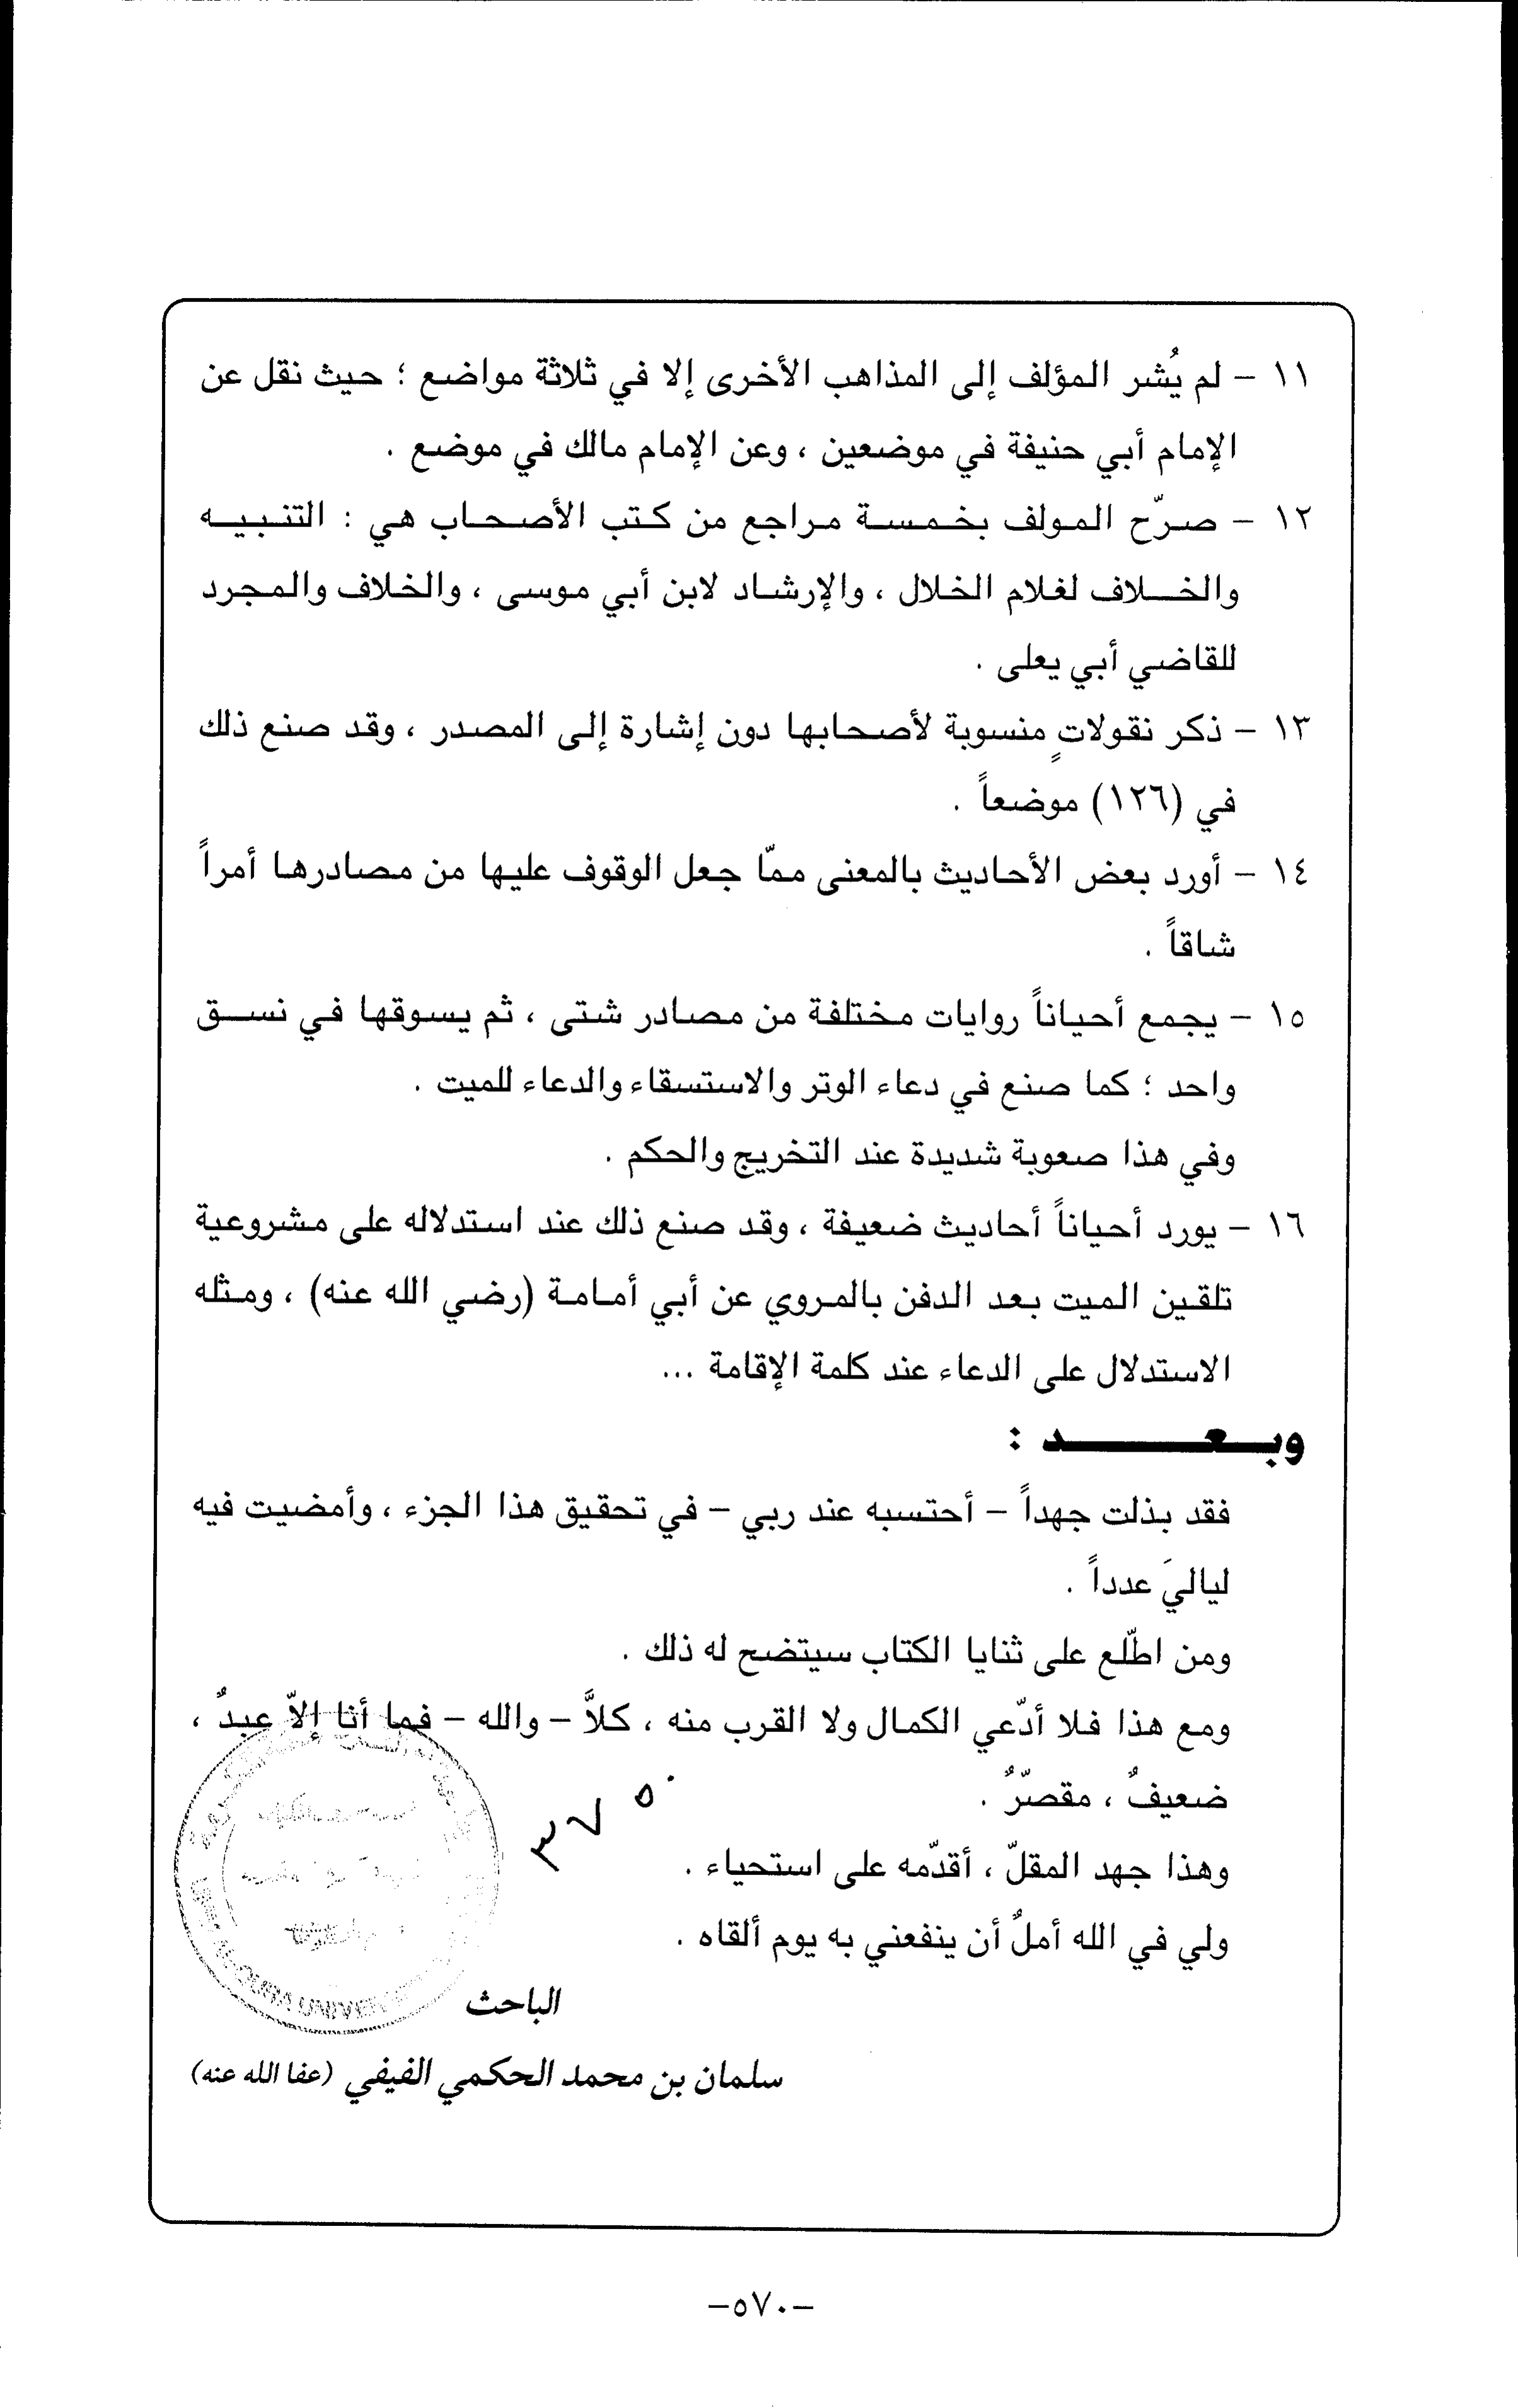 ١١ – لم يُشر المؤلف إلى المذاهب الأخرى إلا في ثلاثة مواضع ؛ حيث نقل عن
الإمام أبي حنيفة في موضعين ، وعن الإمام مالك في موضع .
١٢ – صرّح المولف بخمسة مراجع من كتب الأصحاب هي : التنبيه
والخلاف لغلام الخلال ، والإرشاد لابن أبي موسى ، والخلاف والمجرد
للقاضي أبي يعلى .
١٣ – ذكر نقولاتٍ منسوبة لأصحابها دون إشارة إلى المصدر ، وقد صنع ذلك
في (١٢٦) موضعاً .
١٤ – أورد بعض الأحاديث بالمعنى ممّا جعل الوقوف عليها من مصادرها أمراً
شاقاً .
١٥ – يجمع أحياناً روايات مختلفة من مصادر شتى ، ثم يسوقها في نسق
واحد ؛ كما صنع في دعاء الوتر والاستسقاء والدعاء للميت .
وفي هذا صعوبة شديدة عند التخريج والحكم .
١٦ – يورد أحياناً أحاديث ضعيفة ، وقد صنع ذلك عند استدلاله على مشروعية
تلقين الميت بعد الدفن بالمروي عن أبي أمامة (رضي الله عنه) ، ومثله
الاستدلال على الدعاء عند كلمة الإقامة ...
وبعد :
فقد بذلت جهداً – أحتسبه عند ربي – في تحقيق هذا الجزء ، وأمضيت فيه
لياليَ عدداً .
ومن اطّلع على ثنايا الكتاب سيتضح له ذلك .
ومع هذا فلا أدّعي الكمال ولا القرب منه ، كلاَّ – والله – فما أنا إلاّ عبدٌ ،
ضعيفٌ ، مقصّرٌ .
وهذا جهد المقلّ ، أقدّمه على استحياء .
ولي في الله أملٌ أن ينفعني به يوم ألقاه .
الباحث
سلمان بن محمد الحكمي الفيفي (عفا الله عنه)
–٥٧٠–